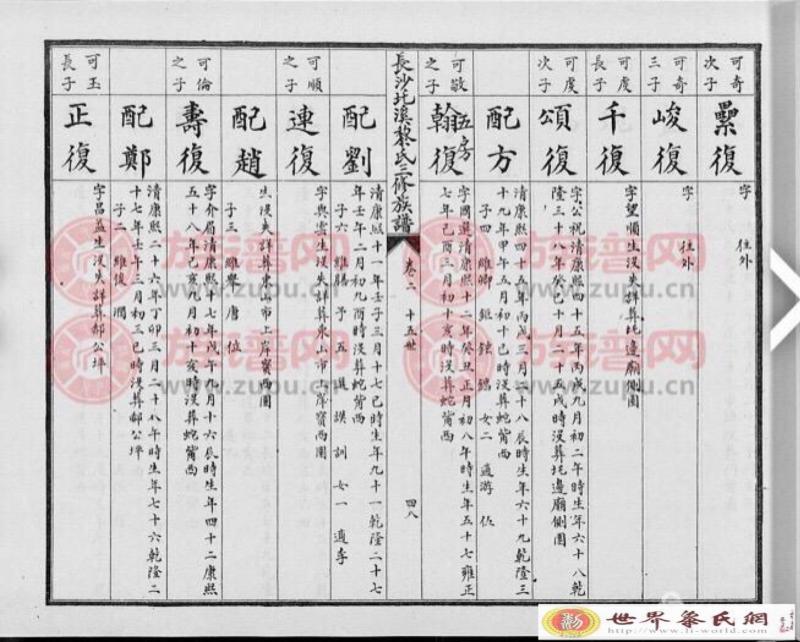 可奇次子
纍復
字 往外
可奇三子
峻復
字 往外
可虞長子
千復
字望順生沒失詳葬圫邊廟側園
可虞次子
頌復
字公祝清康熙四十五年丙戌九月初二午時生年六十八乾
隆三十八年癸巳十月二十五戌時沒葬圫邊廟側園
配方
清康熙四十五年丙戌三月二十八辰時生年六十九乾隆三
十九年甲午五月初十巳時沒葬蛇
子四 維卿 鉅 鉉 女二 適游 伍
可敬之子
五房
翰復
字國選清康熙十二年癸丑正月初八午時生年五十七雍正
七年己酉三月初十亥時沒葬蛇
長沙圫溪黎氏三修族譜
卷二 十五世
四八
配劉
清康熙十一年壬子三月十七巳時生年九十一乾隆二十七
年壬午二月初九酉時沒葬蛇
子六 維膳 予 五 選 謨 訓 女一 適李
可順之子
連復
字興雲生沒失詳葬東山市上岸寶西園
配趙
生沒失詳葬東山市上岸寶西園
子三 維舉 唐 位
可倫之子
壽復
字介眉清康熙十七年戊午九月十六辰時生年四十二康熙
五十八年己亥九月初十亥時沒葬蛇
配鄭
清康熙二十六年丁卯三月二十八午時生年七十六乾隆二
十七年壬午三月初三巳時沒葬郝公坪
子二 維俊 潤
可玉長子
正復
字昌益生沒失詳葬郝公坪
族譜网
www.zupu.cn
世界黎氏網
http://www.li-world.com